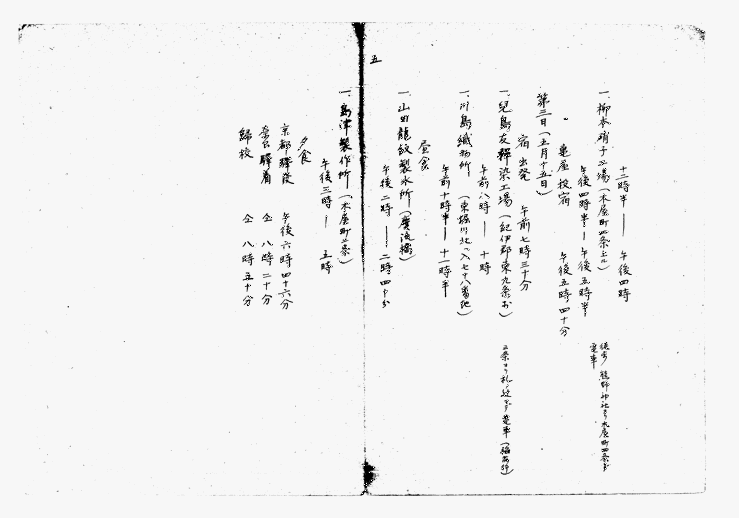 五
十二時半 ― 午後四時
一、柳本硝子工場（木屋町四条上ル）
午後四時半 ― 午後五時半
亀屋 投宿 午後五時四十分
第三日（五月十五日）
宿出発 午前七時三十分
一、児島友禅染工場（紀伊郡東九条村）
午前八時 ― 十時
一、川島織物所（東堀川 七十八番地）
午前十時半 ― 十一時半
昼食
一、山田龍紋製氷所（広流橋）
午後一時 ― 二時四十分
一、島津製作所（木屋町二条）
午後三時 ― 五時
夕食
京都驛発 午後六時四十六分
奈良驛着 仝 八時二十分
帰校 仝 八時五十分